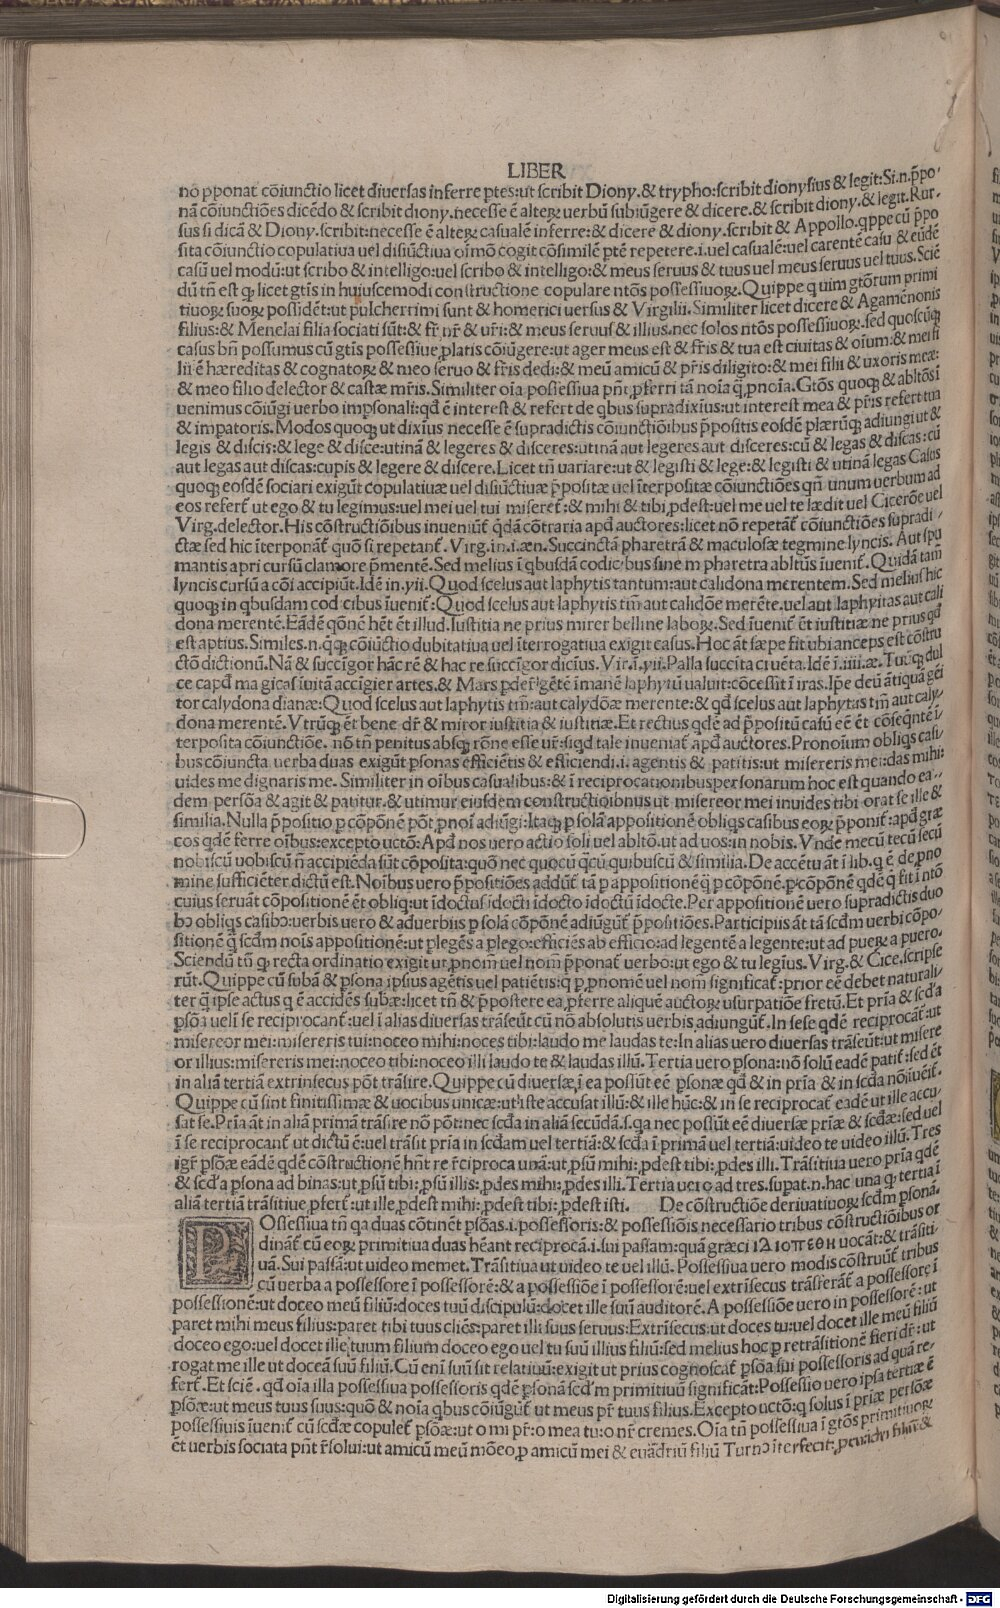 LIBER
nō p̄ponat cōiunctio licet diuersas inferre ptes:ut scribit Diony.& trypho:scribit dionysius & legit:Si.n.p̄po
nā cōiunctiōes dicēdo & scribit diony.necesse ē alteꝝ uerbū subiūgere & dicere.& scribit diony.& legit.Rur-
sus si dicā & Diony.scribit:necesse ē alteꝝ casualē inferre:& dicere & diony.scribit & Appollo.qppe cū p̄po
sita cōiunctio copulatiua uel disiūctiua oīmō cogit cōsimilē ptē repetere.i.uel casualē:uel carentē casu & eūdē
casū uel modū:ut scribo & intelligo:uel scribo & intelligo:& meus seruus & tuus uel meus seruus uel tuus.Sciē
dū tn̄ est ꝙ licet gtīs in huiuscemodi constructione copulare ntōs possessiuoꝝ.Quippe q uim gtōrum primi
tiuoꝝ suoꝝ possidēt:ut pulcherrimi sunt & homerici uersus & Virgilii.Similiter licet dicere & Agamēnonis
filius:& Menelai filia sociati sūt:& fr̄ nr̄ & ur̄i:& meus seruus & illius.nec solos ntōs possessiuoꝝ.sed quoscūqꝫ
casus bn̄ possumus cū gtīs possessiue platis cōiūgere:ut ager meus est & fr̄is & tua est ciuitas & oīum:& mei fi
lii ē hæreditas & cognatoꝝ & meo seruo & fr̄is dedi:& meū amicū & pr̄is diligito:& mei filii & uxoris meæ:
& meo filio delector & castæ mr̄is.Similiter oīa possessiua pn̄t pferri tā noīa q̄ pnoīa.Gtōs quoqꝫ & abltōs ī
uenimus cōiūgi uerbo impsonali:qd̄ ē interest & refert de qbus supradixīus:ut interest mea & pr̄is refert tua
& impatoris.Modos quoqꝫ ut dixīus necesse ē supradictis cōiunctiōibus p̄positis eosdē plærūqꝫ adiungi ut &
legis & discis:& lege & disce:utinā & legeres & disceres:utinā aut legeres aut disceres:cū & legas & discas:cū
aut legas aut discas:cupis & legere & discere.Licet tn̄ uariare:ut & legisti & lege:& legisti & utinā legas Casus
quoqꝫ eosdē sociari exigūt copulatiuæ uel disiūctiuæ p̄positæ uel īterpositæ cōiunctiōes qn̄ unum uerbum ad
eos refert̄ ut ego & tu legimus:uel mei uel tui miseret̄:& mihi & tibi pdest:uel me uel te lædit uel Cicerōe uel
Virg.delector.His cōstructiōibus inueniūt̄ qdā cōtraria apd̄ auctores:licet nō repetāt̄ cōiunctiōes supradi-
ctæ sed hic īterponāt̄ quō si repetant̄.Virg.in.i.æn.Succinctā pharetrā & maculosæ tegmine lyncis. Aut spu
mantis apri cursū clamore p̄mentē.Sed melius ī qbusdā codicibus sine m pharetra abltūs īuenit̄.Quidā tam
lyncis cursū a cōi accipiūt.Idē in.yii.Quod scelus aut laphytis tantum:aut calidona merentem.Sed melius hic
quoqꝫ in qbusdam codicibus īuenit̄:Quod scelus aut laphytis tm̄ aut calidōe merēte.uel aut laphyitas aut cali
dona merentē.Eādē qōnē hēt ēt illud.Iustitia ne prius mirer belline laboꝝ.Sed īuenit̄ ēt iustitiæ ne prius qd̄
est aptius.Similes.n.q̄qꝫ cōiūctio dubitatiua uel īterrogatiua exigit casus.Hoc āt sæpe fit ubi anceps est cōstru
ctō dictionū.Nā & succīgor hāc rē & hac re succīgor dicīus.Vir.ī.yii.Palla succīta cruēta.Idē ī.iiii.æ.Tuūqꝫ dul
ce capd̄ magicas īuitā accīgier artes.& Mars pder̄ īgētē īmanē laphytū ualuit:cōcessit ī iras.Ipe deū ātiquā gēi
tor calydona dianæ:Quod scelus aut laphytis tm̄:aut calydōæ merente:& qd̄ scelus aut laphytas tm̄ aut caly-
dona merentē.Vtrūqꝫ ēt bene dr̄ & miror iustitia & iustitiæ.Et rectius qdē ad p̄positū casū eē ēt cōseqnte ī
terposita cōiunctiōe. nō tn̄ penitus absqꝫ rōne esse ur̄:siqd tale inueniat̄ apd̄ auctores.Pronoīum obliqs casi
bus cōiuncta uerba duas exigūt psonas efficiētis & efficiendi.i.agentis & patitis:ut misereris mei:das mihi:
uides me dignaris me. Similiter in oībus casualibus:& ī reciprocationibuspersonarum hoc est quando ea-
dem persōa & agit & patitur.& utimur eiusdem constructioībnus ut misereor mei inuides tibi orat se ille &
similia.Nulla p̄positio p cōpōnē pōt pnoī adiūgi:Itaqꝫ p solā appositionē obliqs casibus eoꝝ p̄ponit̄:apd̄ græ
cos qdē ferre oībus:excepto uctō:Apd̄ nos uero actiō soli uel abltō.ut ad uos:in nobis.Vnde mecū tecū secū
nobiscū uobiscū n̄ accipiēda sūt cōposita:quō nec quocū q̄cū quibuscū & similia.De accētu āt ī lib.q ē de pno
mine sufficiēter dictū est.Noībus uero p̄positiōes addūt̄ tā p appositionē q̄ p cōpōnē.p cōpōnē qdē q fit ī ntō
cuius seruāt cōpositionē ēt obliq:ut īdoctus īdocti īdocto īdoctū īdocte.Per appositionē uero supradictis duo
bɔ obliqs casibɔ:uerbis uero & aduerbiis p solā cōpōnē adiūgūt̄ p̄positiōes.Participiis āt tā scd̄m uerbi cōpo-
sitionē q̄ scd̄m noīs appositionē:ut plegēs a plego:efficiēs ab efficio:ad legentē a legente:ut ad pueꝝ a puero.
Sciendū tn̄ ꝙ recta ordinatio exigit ut pnom̄ uel nom̄ p̄ponat̄ uerbo:ut ego & tu legīus.Virg.& Cice.scripse
rūt.Quippe cū subā & psona ipsius agētis uel patiētis:q p pnomē uel nom̄ significat̄:prior eē debet naturali-
ter q̄ ipse actus q ē accidēs subæ:licet tn̄ & p̄postere ea pferre aliquē auctoꝝ usurpatiōe fretū.Et prīa & scd'a
psōa uel ī se reciprocant̄:uel ī alias diuersas trāseūt cū nō absolutis uerbis adiungūt̄.In sese qdē reciprocāt̄:ut
misereor mei:misereris tui:noceo mihi:noces tibi:laudo me laudas te:In alias uero diuersas trāseūt:ut misere
or illius:misereris mei:noceo tibi:noceo illi laudo te & laudas illū.Tertia uero psona:nō solū eadē patit̄:sed ēt
in aliā tertiā extrinsecus pōt trāsire.Quippe cū diuersæ ī ea possūt eē psonæ qd̄ & in prīa & in scd̄a nō īueīt̄.
Quippe cū sint finitissimæ & uocibus unicæ:ut īste accusat illū:& ille hūc:& in se reciprocat̄ eadē ut ille accu-
sat se.Prīa āt in aliā primā trāsire nō pōt:nec scd̄a in aliā secūdā.s.qa nec possūt eē diuersæ prīæ & scd̄æ:sed uel
ī se reciprocant̄ ut dictū ē:uel trāsit prīa in scd̄am uel tertiā:& scd̄a ī primā uel tertiā:uideo te uideo illū.Tres
igr̄ psōæ eādē qdē cōstructionē hn̄t reciproca unā:ut psū mihi:pdest tibi:pdes illi.Trāsitiua uero prīa qdē
& scd'a psona ad binas:ut psū tibi:psū illis:pdes mihi:pdes illi.Tertia uero ad tres.supat.n.hac una qꝫ tertia ī
aliā tertiā trāsitiue pfert̄:ut ille pdest mihi:pdest tibi:pdest isti. De cōstructiōe deriuatiuoꝝ scd̄m psonā.
POssessiua tn̄ qa duas cōtinēt psōas.i.possessoris:& possessiōis necessario tribus cōstructiōibus or
dināt̄ cū eoꝝ primitiua duas hēant reciprocā.i.sui passam:quā græci ιδιοπεθη uocāt:& trāsiti-
uā.Sui passā:ut uideo memet.Trāsitiua ut uideo te uel illū.Possessiua uero modis cōstruūt̄ tribus
cū uerba a possessore ī possessorē:& a possessiōe ī possessorē:uel extrīsecus trāsferāt̄ a possessore ī
possessionē:ut doceo meū filiū:doces tuū discipulū:docet ille suū auditorē.A possessiōe uero in possessorē:ut
paret mihi meus filius:paret tibi tuus cliēs:paret illi suus seruus:Extrīsecus:ut doces tu:uel docet ille meū filiū
doceo ego:uel docet ille tuum filium doceo ego uel tu suū illius filiū:sed melius hoc p retrāsitionē fieri dr̄:ut
rogat me ille ut doceā suū filiū.Cū enī suū sit relatiuū:exigit ut prius cognoscat̄ psōa sui possessoris ad quā re-
fert̄.Et sciē. qd̄ oīa illa possessiua possessoris qdē psonā scd̄'m primitiuū significāt:Possessio uero ipsa tertiæ ē
psōæ:ut meus tuus suus:quō & noīa qbus cōiūgūt̄ ut meus pr̄ tuus filius.Excepto uctō:q solus ī prīæ persōæ
possessiuis īuenit̄ cū scd̄æ copulet̄ psōæ:ut o mi pr̄:o mea tu:o nr̄ cremes.Oīa tn̄ possessiua ī gtōs primitiuoꝝ
ēt uerbis sociata pn̄t r̄solui:ut amicū meū mōeo p amicū mei & euādriū filiū Turnɔ īterfecit:p euādri filiū &
Digitalisierung gefördert durch die Deutsche Forschungsgemeinschaft - DFG